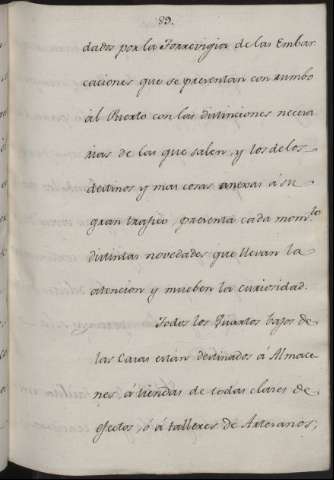 89.
dados por la Torrevigia de las Embar
caciones que se presentan con rumbo
al Puerto con las distinciones necesa
rias de las que salen, y los de los
destinos y mas cosas anexas á su
gran trafico presenta cada mom.to
distintas novedades que llevan la
atencion y mueben la curiosidad.
Todos los Quartos bajos de
las Casas están destinados á Almace
nes, á tiendas de todas clases de
efectos, ó á talleres de Artesanos,